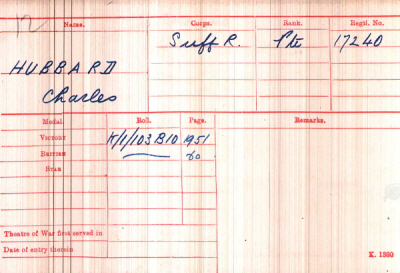 12
Name. Corps. Rank. Regtl. No.
HUBBARD Suff R. Pte 17240
Charles
Medal. Roll. Page. Remarks.
VICTORY K/1/103 B10 1951
BRITISH do
STAR
Theatre of War first served in
Date of entry therein
K. 1380